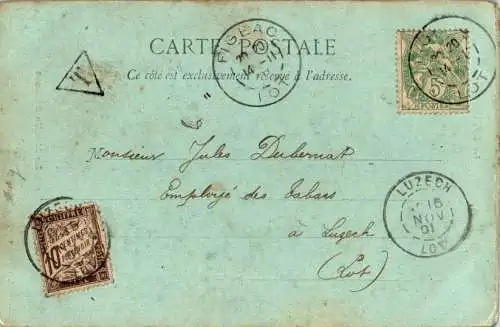 CARTE POSTALE
Ce côté est exclusivement réservé à l'adresse.
T
FIGEAC
LOT
5
POSTES
LOT
Monsieur Jules Dubernat
Employé des tabacs
à Luzech
(Lot)
LUZECH
15
NOV
01
LOT
LUZECH
10
CENTIMES
À PERCEVOIR